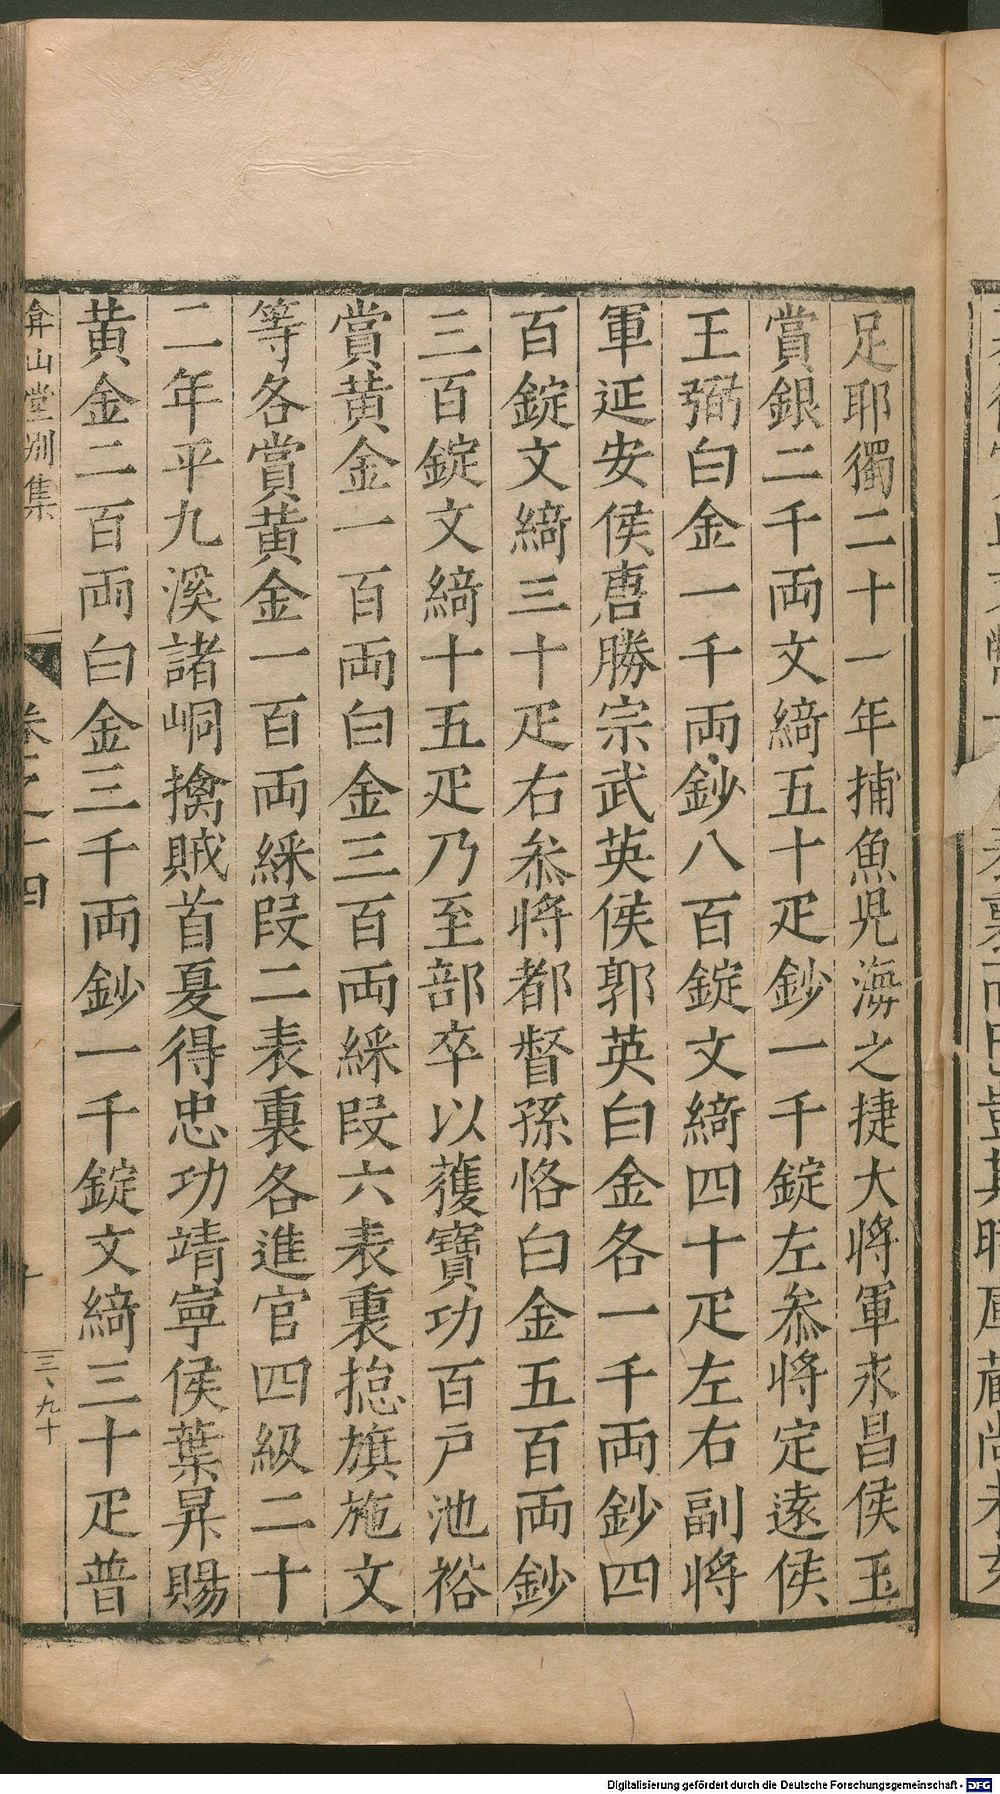 足耶獨二十一年捕魚児海之捷大將軍永昌侯玉
賞銀二千両文綺五十疋鈔一千錠左叅將定遠侯
王弼白金一千両鈔八百錠文綺四十疋左右副將
軍延安侯唐勝宗武英侯郭英白金各一千両鈔四
百錠文綺三十疋右叅將都督孫恪白金五百両鈔
三百錠文綺十五疋乃至部卒以獲寶功百戸池裕
賞黄金一百両白金三百両綵段六表裏揔旗施文
等各賞黄金一百両綵段二表裏各進官四級二十
二年平九溪諸峒擒賊首夏得忠功靖寧侯葉昇賜
黄金二百両白金三千両鈔一千錠文綺三十疋普
弇山堂別集
卷之十四
三、九十
Digitalisierung gefördert durch die Deutsche Forschungsgemeinschaft - DFG